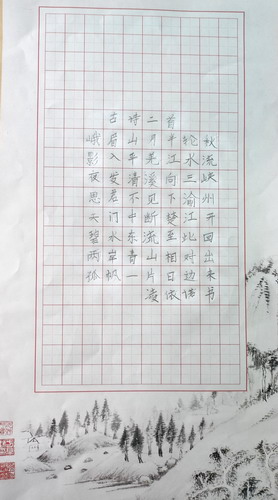 古诗二首
峨眉山月半轮秋
影入平羌江水流
夜发清溪向三峡
思君不见下渝州
天门中断楚江开
碧水东流至此回
两岸青山相对出
孤帆一片日边来
凌依诺书